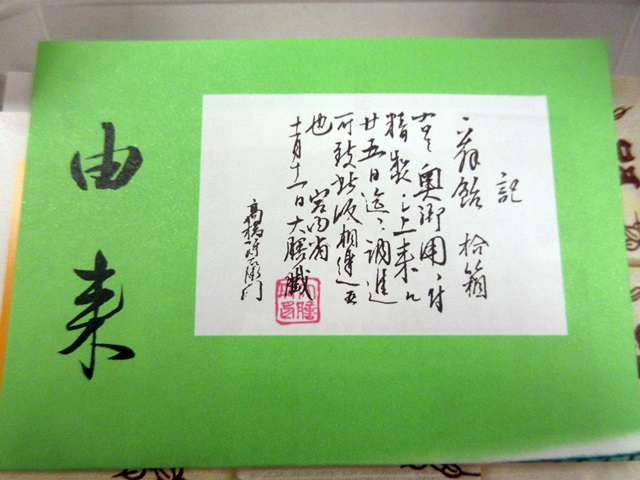 由来
記
一翁飴 拾箱
奥御用ニ付
精製之上来ル
廿五日迄ニ調進
可致此段相達
也 宮内省
十一月十一日 大膳職
高橋孫左衛門